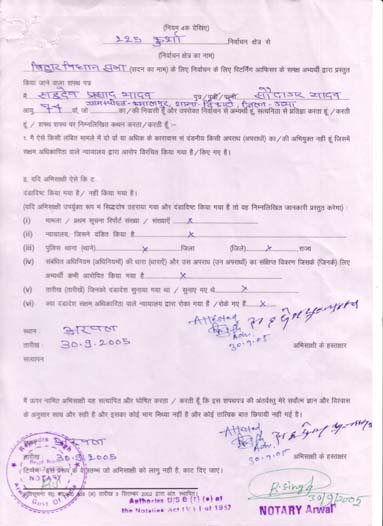 (नियम 4क देखिए)
225 कुर्था निर्वाचन क्षेत्र से
(निर्वाचन क्षेत्र का नाम)
बिहार विधान सभा (सदन का नाम) के लिए निर्वाचन के लिए रिटर्निंग आफिसर के समक्ष अभ्यर्थी द्वारा प्रस्तुत
किया जाने वाला शपथ पत्र
मैं सहदेव प्रसाद यादव पुत्र/पुत्री/पत्नी सौदागर यादव
आयु 74 वर्ष, जो का/की निवासी हूँ और उपरोक्त निर्वाचन से अभ्यर्थी हूँ, सत्यनिष्ठा से प्रतिज्ञा करता हूँ /करती
हूँ / शपथ पर निम्नलिखित कथन करता/करती हूँ :-
मैं ऐसे किसी लंबित मामले में दो वर्ष या अधिक के कारावास से दंडनीय किसी अपराध (अपराधों) का/की अभियुक्त नहीं हूँ जिसमें
सक्षम अधिकारिता वाले न्यायालय द्वारा आरोप विरचित किया गया है/किए गए हैं।
यदि अभिसाक्षी ऐसे कि
दंडादिष्ट किया गया है/ नहीं किया गया है।
(यदि अभिसाक्षी उपर्युक्त रूप में सिद्धदोष ठहराया गया और दंडादिष्ट किया गया है तो वह निम्नलिखित जानकारी प्रस्तुत करेगा) :
(i) मामला / प्रथम सूचना रिपोर्ट संख्या / संख्याएँ x
(ii) न्यायालय, जिसने दंडित किया है x
(iii) पुलिस थाना (थाने) x जिला (जिले) x राज्य
(iv) संबंधित अधिनियम (अधिनियमों) की धारा (धाराएँ) और उस अपराध (उन अपराधों) का संक्षिप्त विवरण जिसके (जिनके) लिए
अभ्यर्थी को आरोपित किया गया है x
(v) तारीख (तारीखें) जिनको दंडादेश सुनाया गया था / सुनाए गए थे x
(vi) क्या दंडादेश सक्षम अधिकारिता वाले न्यायालय द्वारा रोका गया है /रोके गए हैं x
Attested
स्थान : अरवल
Adv.
तारीख : 30.9.2005 30.9.05 अभिसाक्षी के हस्ताक्षर
सत्यापन
मैं ऊपर नामित अभिसाक्षी यह सत्यापित और घोषित करता / करती हूँ कि इस शपथपत्र की अंतर्वस्तु मेरे सर्वोत्तम ज्ञान और विश्वास
के अनुसार सत्य और सही है और इसका कोई भाग मिथ्या नहीं है और कोई तात्विक बात छिपायी नहीं गई है।
Attested
अरवल
तारीख 30.9.2005 30.9.05 अभिसाक्षी के हस्ताक्षर
NOTARY
जो अभिसाक्षी को लागू नहीं है, काट दिए जाए।
R. Singh
30/9/2005
Authories U/S 8 (1) (e) of
the Notaries Act
NOTARY Arwal